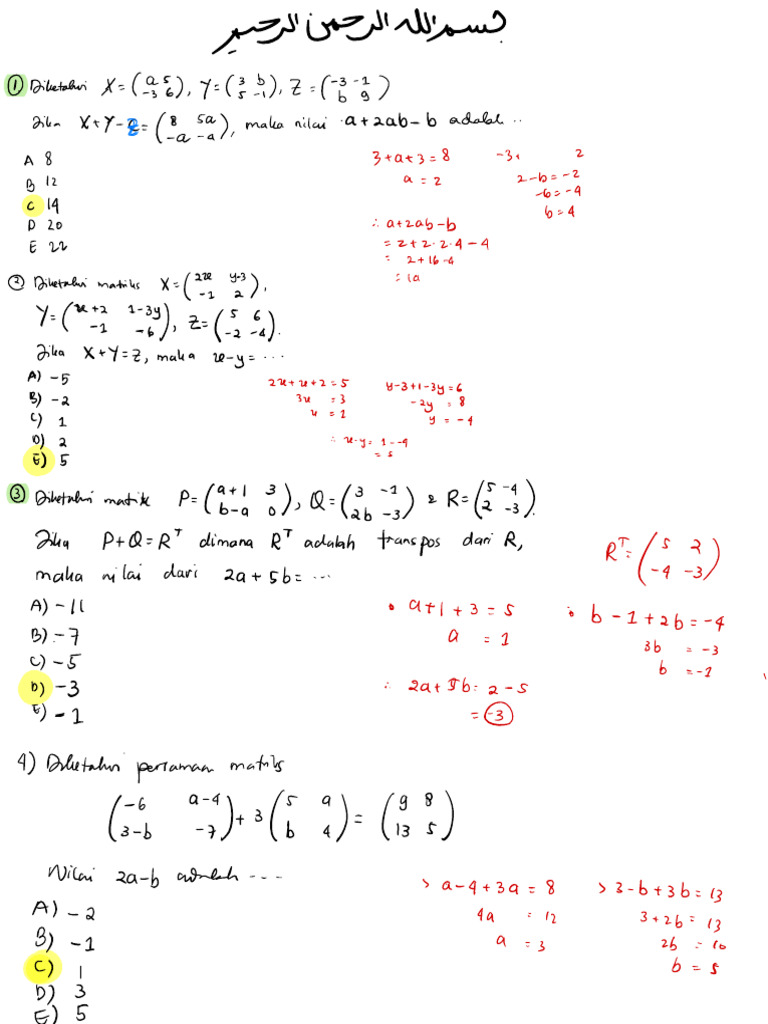 بسم الله الرحمن الرحيم
① Diketahui X = (a 5; -3 6), Y = (3 b; 5 -1), Z = (-3 -1; b 9)
Jika X+Y-Z = (8 5a; -a -4), maka nilai a+2ab-b adalah ..
A 8
B 12
C 14
D 20
E 22
3+a+3=8
a = 2
-3+ 2
2-b=-2
-6=-4
b=4
∴ a+2ab-b
= 2+2·2·4-4
= 2+16-4
= 1a
② Diketahui matriks X = (2x y-3; -1 2),
Y = (x+2 1-3y; -1 -6), Z = (5 6; -2 -4).
Jika X+Y=Z, maka x-y= ...
A) -5
B) -2
C) 1
D) 2
E) 5
2x+x+2=5
3x = 3
x = 1
y-3+1-3y=6
-2y = 8
y = -4
∴ x-y = 1--4
= 5
③ Diketahui matrik P = (a+1 3; b-a 0), Q = (3 -1; 2b -3) & R = (5 -4; 2 -3).
Jika P+Q=Rᵀ dimana Rᵀ adalah transpos dari R,
maka nilai dari 2a+5b= ...
A) -11
B) -7
C) -5
D) -3
E) -1
Rᵀ = (5 2; -4 -3)
• a+1+3=5
a = 1
• b-1+2b=-4
3b = -3
b = -1
∴ 2a+5b = 2-5
= -3
4) Diketahui persamaan matriks
(-6 a-4; 3-b -7) + 3 (5 a; b 4) = (9 8; 13 5)
Nilai 2a-b adalah ...
A) -2
B) -1
C) 1
D) 3
E) 5
> a-4+3a = 8
4a = 12
a = 3
> 3-b+3b = 13
3+2b = 13
2b = 10
b = 5